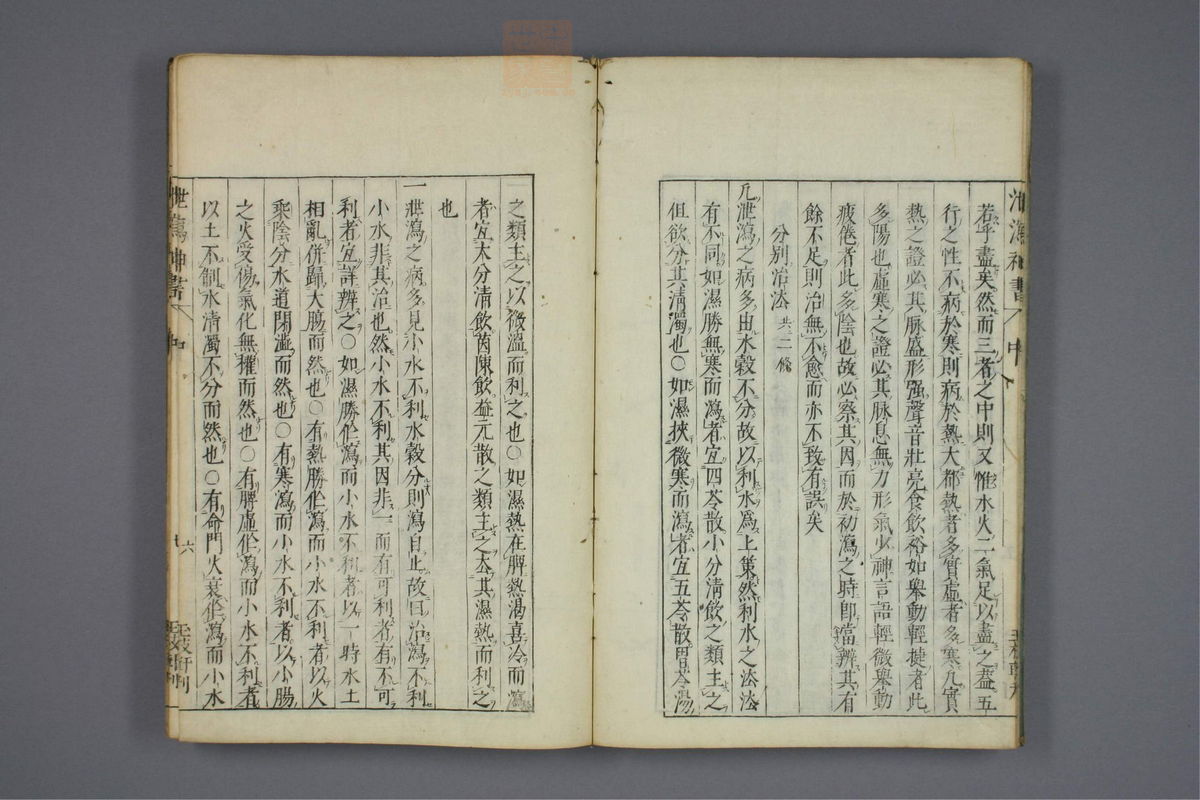 若乎盡矣然而三者之中則又惟水火二氣足以盡之蓋五
行之性不病於寒則病於熱大都熱者多實虛者多寒凡實
熱之證必其脉盛形强聲音壯亮食飲裕如舉動輕捷者此
多陽也虛寒之證必其脉息無力形氣少神言語輕微舉動
疲倦者此多陰也故必察其因而於初瀉之時即當辨其有
餘不足則治無不愈而亦不致有誤矣
分别治法 共二條
凡泄瀉之病多由水穀不分故以利水爲上策然利水之法法
有不同如濕勝無寒而瀉者宜四苓散小分清飲之類主之
但欲分其清濁也○如濕挾微寒而瀉者宜五苓散胃苓湯
之類主之以微溫而利之也○如濕熱在脾熱渴喜冷而瀉
者宜大分清飲茵陳飲益元散之類主之去其濕熱而利之
也
一泄瀉之病多見小水不利水穀分則瀉自止故曰治瀉不利
小水非其治也然小水不利其因非一而有可利者有不可
利者宜詳辨之○如濕勝作瀉而小水不利者以一時水土
相亂併歸大腸而然也○有熱勝作瀉而小水不利者以火
乘陰分水道閉澁而然也○有寒瀉而小水不利者以小腸
之火受傷氣化無權而然也○有脾虛作瀉而小水不利者
以土不制水清濁不分而然也○有命門火衰作瀉而小水
泄瀉神書